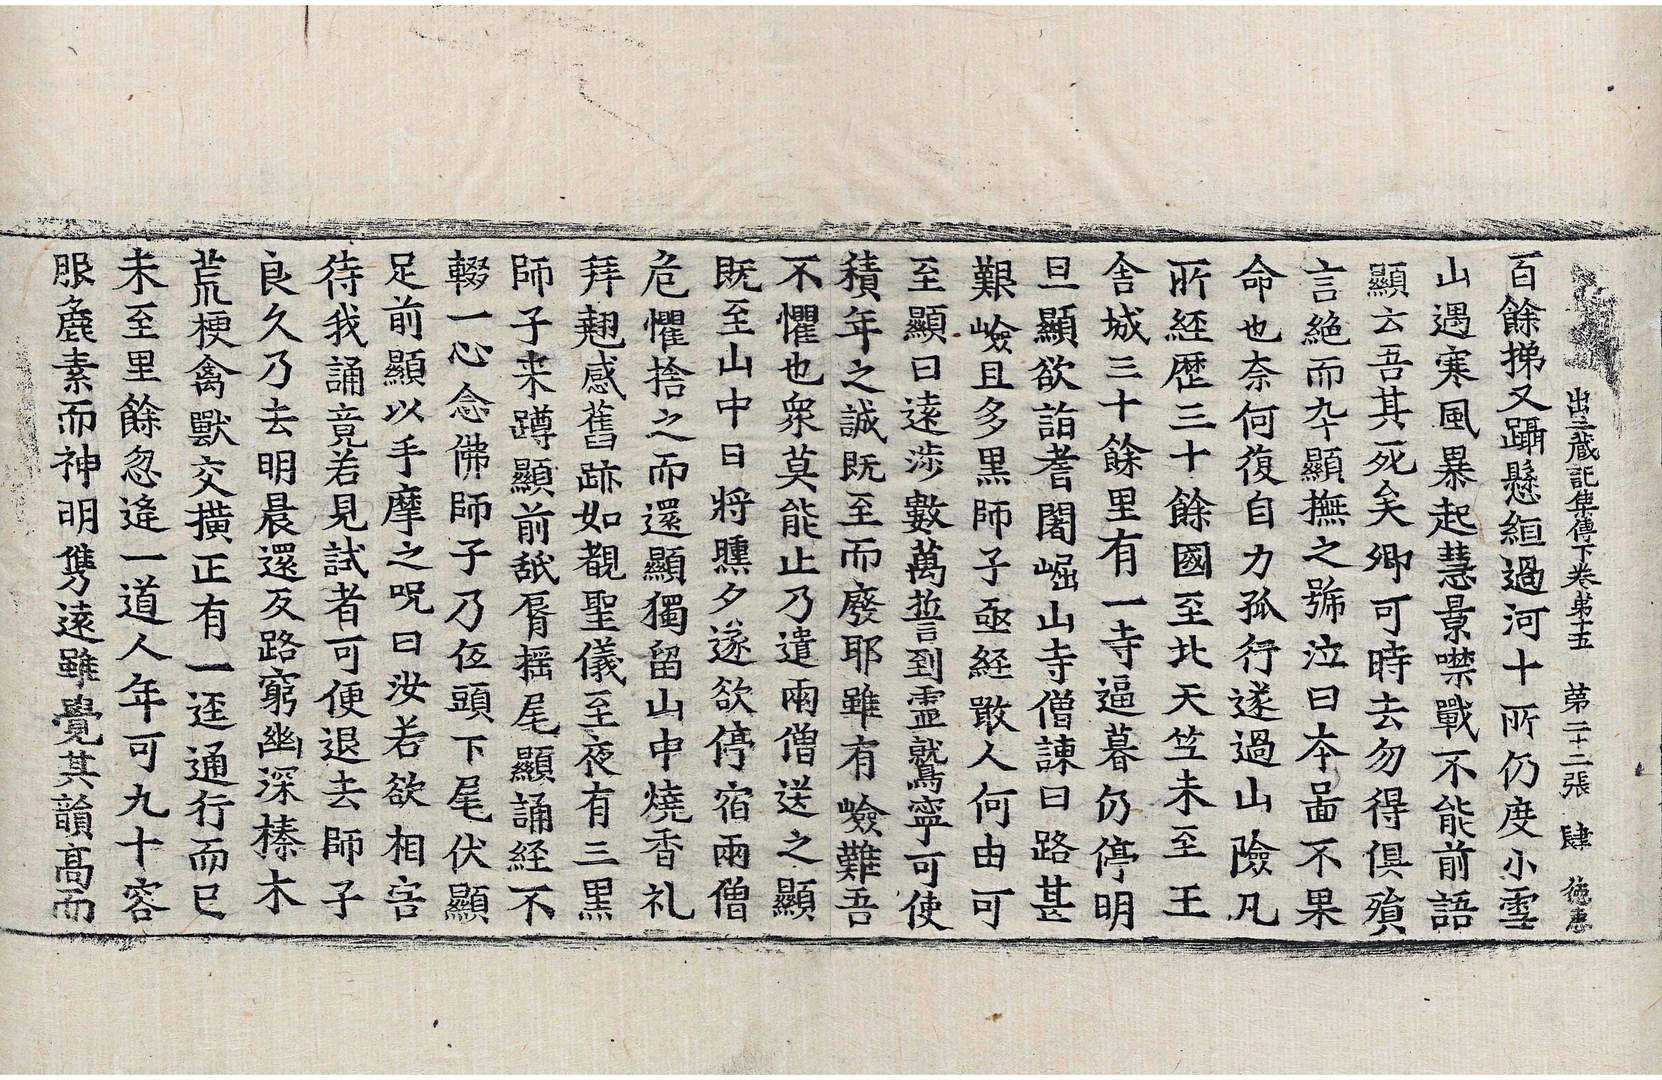 出三藏記集傳下卷第十五　第二十二張　肆
百餘梯又躡懸絙過河十所仍度小雪
山遇寒風暴起慧景噤戰不能前語
顯云吾其死矣卿可時去勿得俱殞
言絶而卒顯撫之號泣曰本啚不果
命也奈何復自力孤行遂過山險凡
所経歷三十餘國至北天竺未至王
舍城三十餘里有一寺逼暮仍停明
旦顯欲詣耆闍崛山寺僧諫曰路甚
艱嶮且多黒師子亟経噉人何由可
至顯曰遠涉數萬誓到靈鷲寧可使
積年之誠既至而廢耶雖有嶮難吾
不懼也衆莫能止乃遣兩僧送之顯
既至山中日將曛夕遂欲停宿兩僧
危懼捨之而還顯獨留山中燒香礼
拜翹感舊跡如覩聖儀至夜有三黒
師子来蹲顯前舐脣揺尾顯誦経不
輟一心念佛師子乃伍頭下尾伏顯
足前顯以手摩之呪曰汝若欲相害
待我誦竟若見試者可便退去師子
良久乃去明晨還反路窮幽深榛木
荒梗禽獸交橫正有一逕通行而已
未至里餘忽逢一道人年可九十容
服麁素而神明雋遠雖覺其韻高而